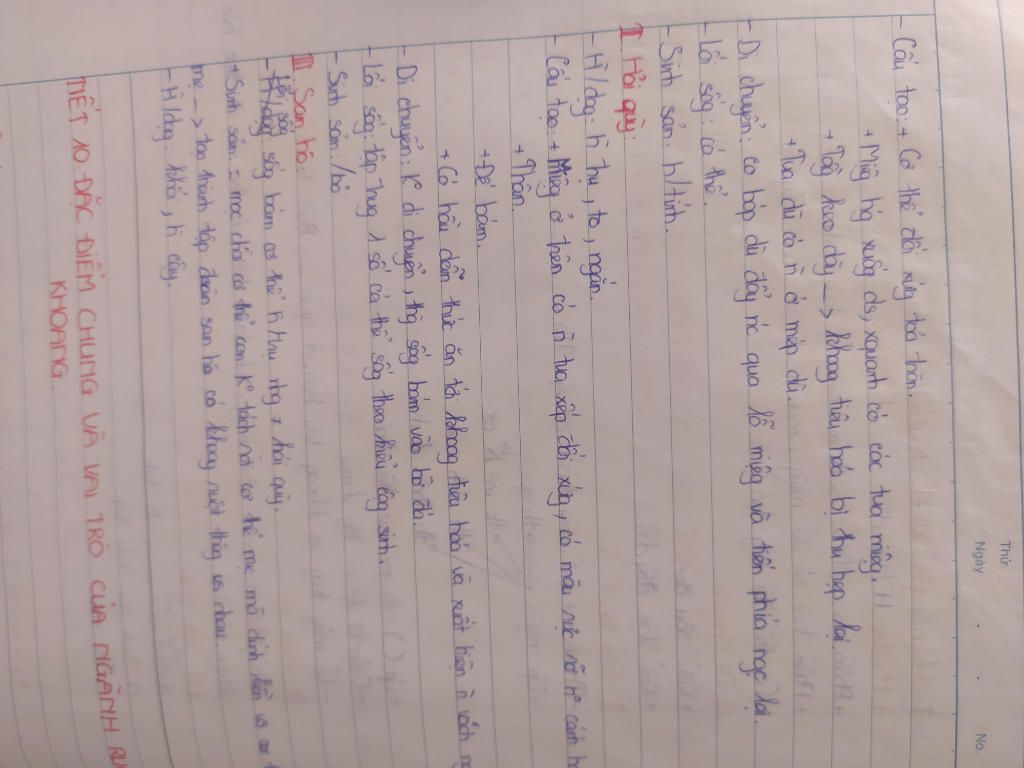 Thứ
Ngày . . No.
- Cấu tạo: + Cơ thể đối xứng toả tròn.
+ Miệng hg xuống ds, xquanh có các tua miệng.
+ Tầng keo dày → khoang tiêu hoá bị thu hẹp lại
+ Tua dù có ñ ở mép dù.
- Di chuyển: co bóp dù đẩy nc qua lỗ miệng và tiến phía ngc lại
- Lối sốg: cá thể.
- Sinh sản: h/tính.
II Hải quỳ:
- H/dạg: h̀ trụ, to, ngắn.
- Cấu tạo: + Miệng ở trên có ñ tua xếp đối xứng, có màu sắc rỡ n² cánh h
+ Thân.
+ Đế bám.
+ Có hầu dẫn thức ăn tới khoang tiêu hoá và xuất hiện ñ vách n
- Di chuyển: K⁰ di chuyển, thg sốg bám vào bờ đá.
- Lối sốg: tập trug 1 số cá thể sống theo kiểu cộg sinh.
- Sinh sản: /bỏ
III San hô:
- Lối sốg: sốg bám cơ thể h̀ trụ nhg ≠ hải quỳ.
+ Sinh sản: = mọc chồi cơ thể con K⁰ tách rời cơ thể mẹ mà dính liền vs cơ t
mẹ → tạo thành tập đoàn san hô có khoang ruột thôg vs nhau
- H/dạg: khối, h̀ cây.
TIẾT 10. ĐẶC ĐIỂM CHUNG VÀ VAI TRÒ CỦA NGÀNH RU
KHOANG.